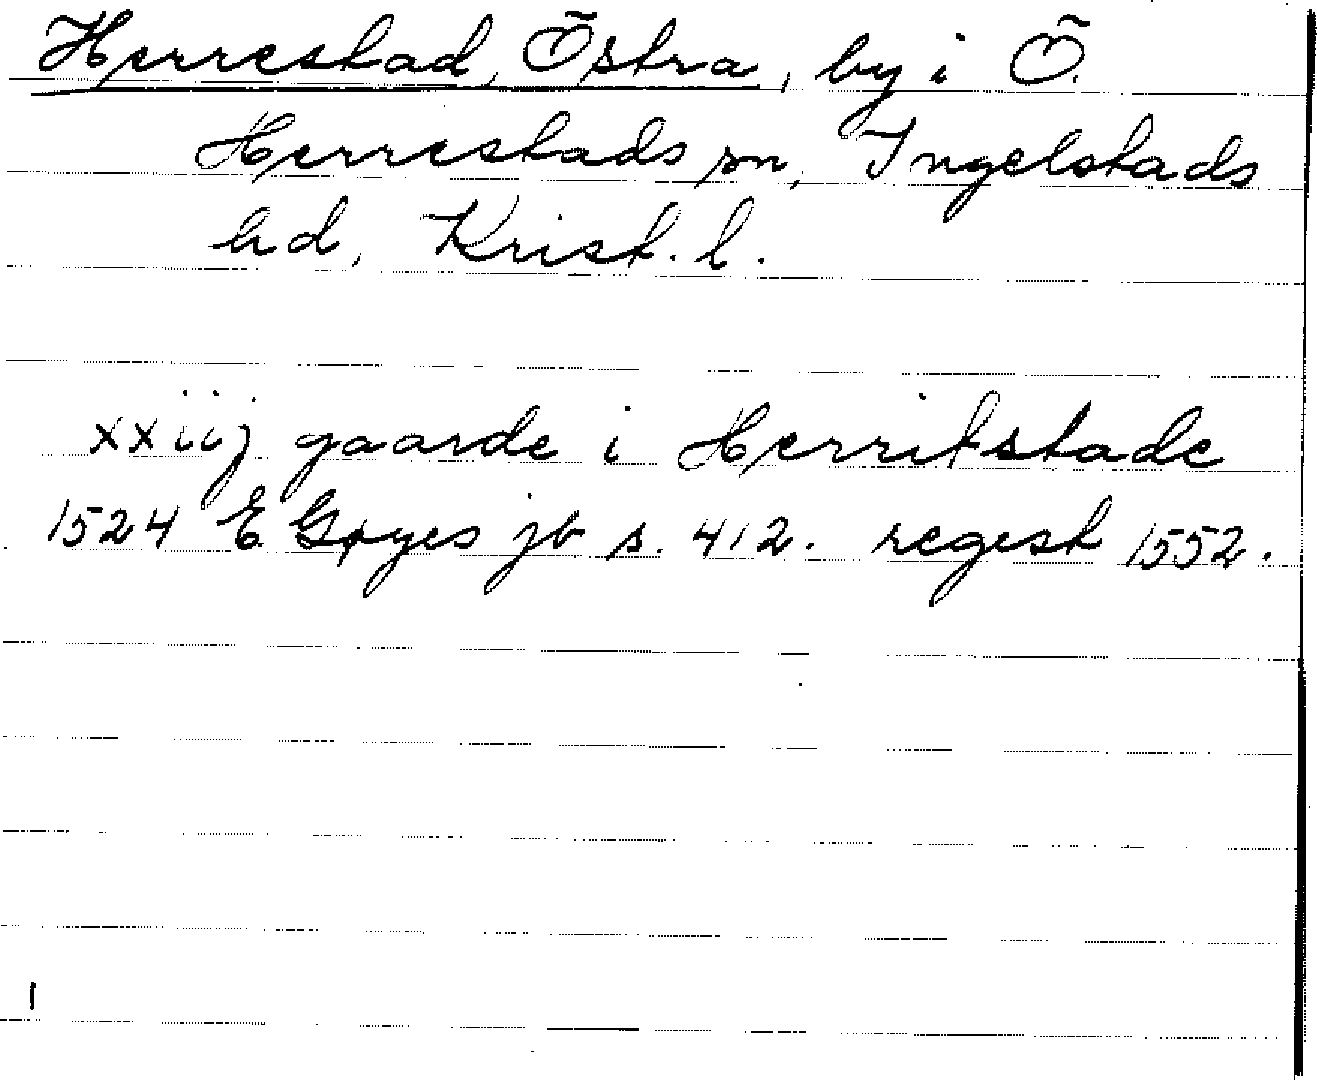 Herrestad, Östra, by i Ö.
Herrestads sn, Ingelstads
hd, Krist. l.
xxiij gaarde i Herrikstade
1524 E Gøyes jb s. 412. regest 1552.